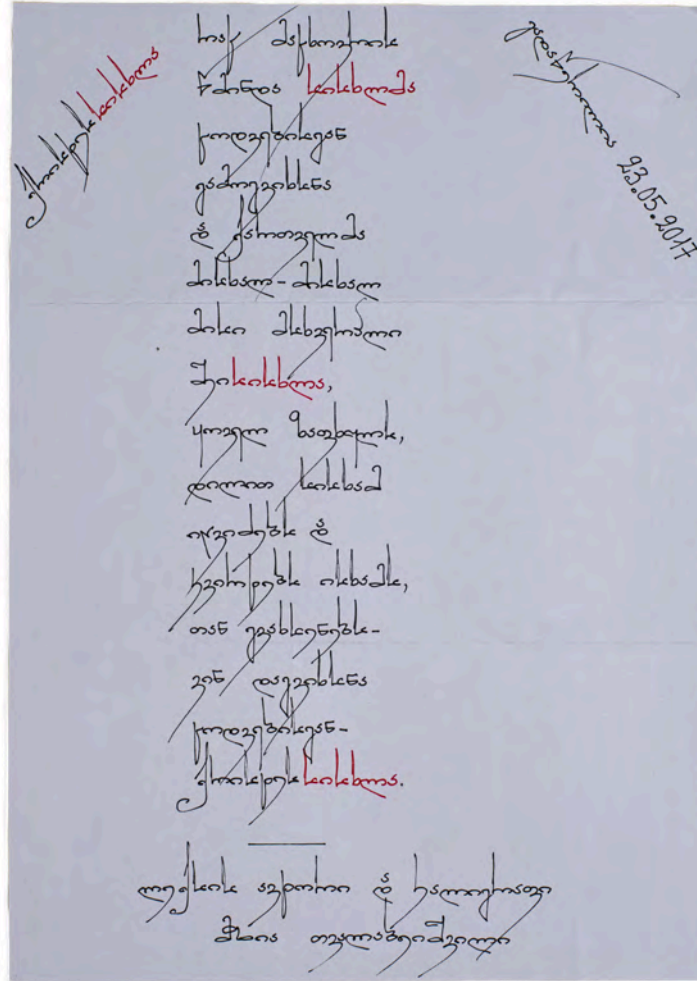 ქრისტესსისხლა
გადაწერილია 23.05.2017
რაც მაცხოვრის
წმინდა სისხლმა
ცოდვებისგან
გამოგვიხსნა
და ქართველმა
მისხალ-მისხალ
მისი მსხვერპლი
შეისისხლა,
ყოველ ზაფხულს,
დილით სისხამ
იღვიძებს და
კვირტებს ისხამს,
თან გვახსენებს-
ვინ დაგვიხსნა
ცოდვებისგან-
ქრისტესსისხლა.
ლექსის ავტორი და კალიგრაფი
მზია თვალაბეიშვილი